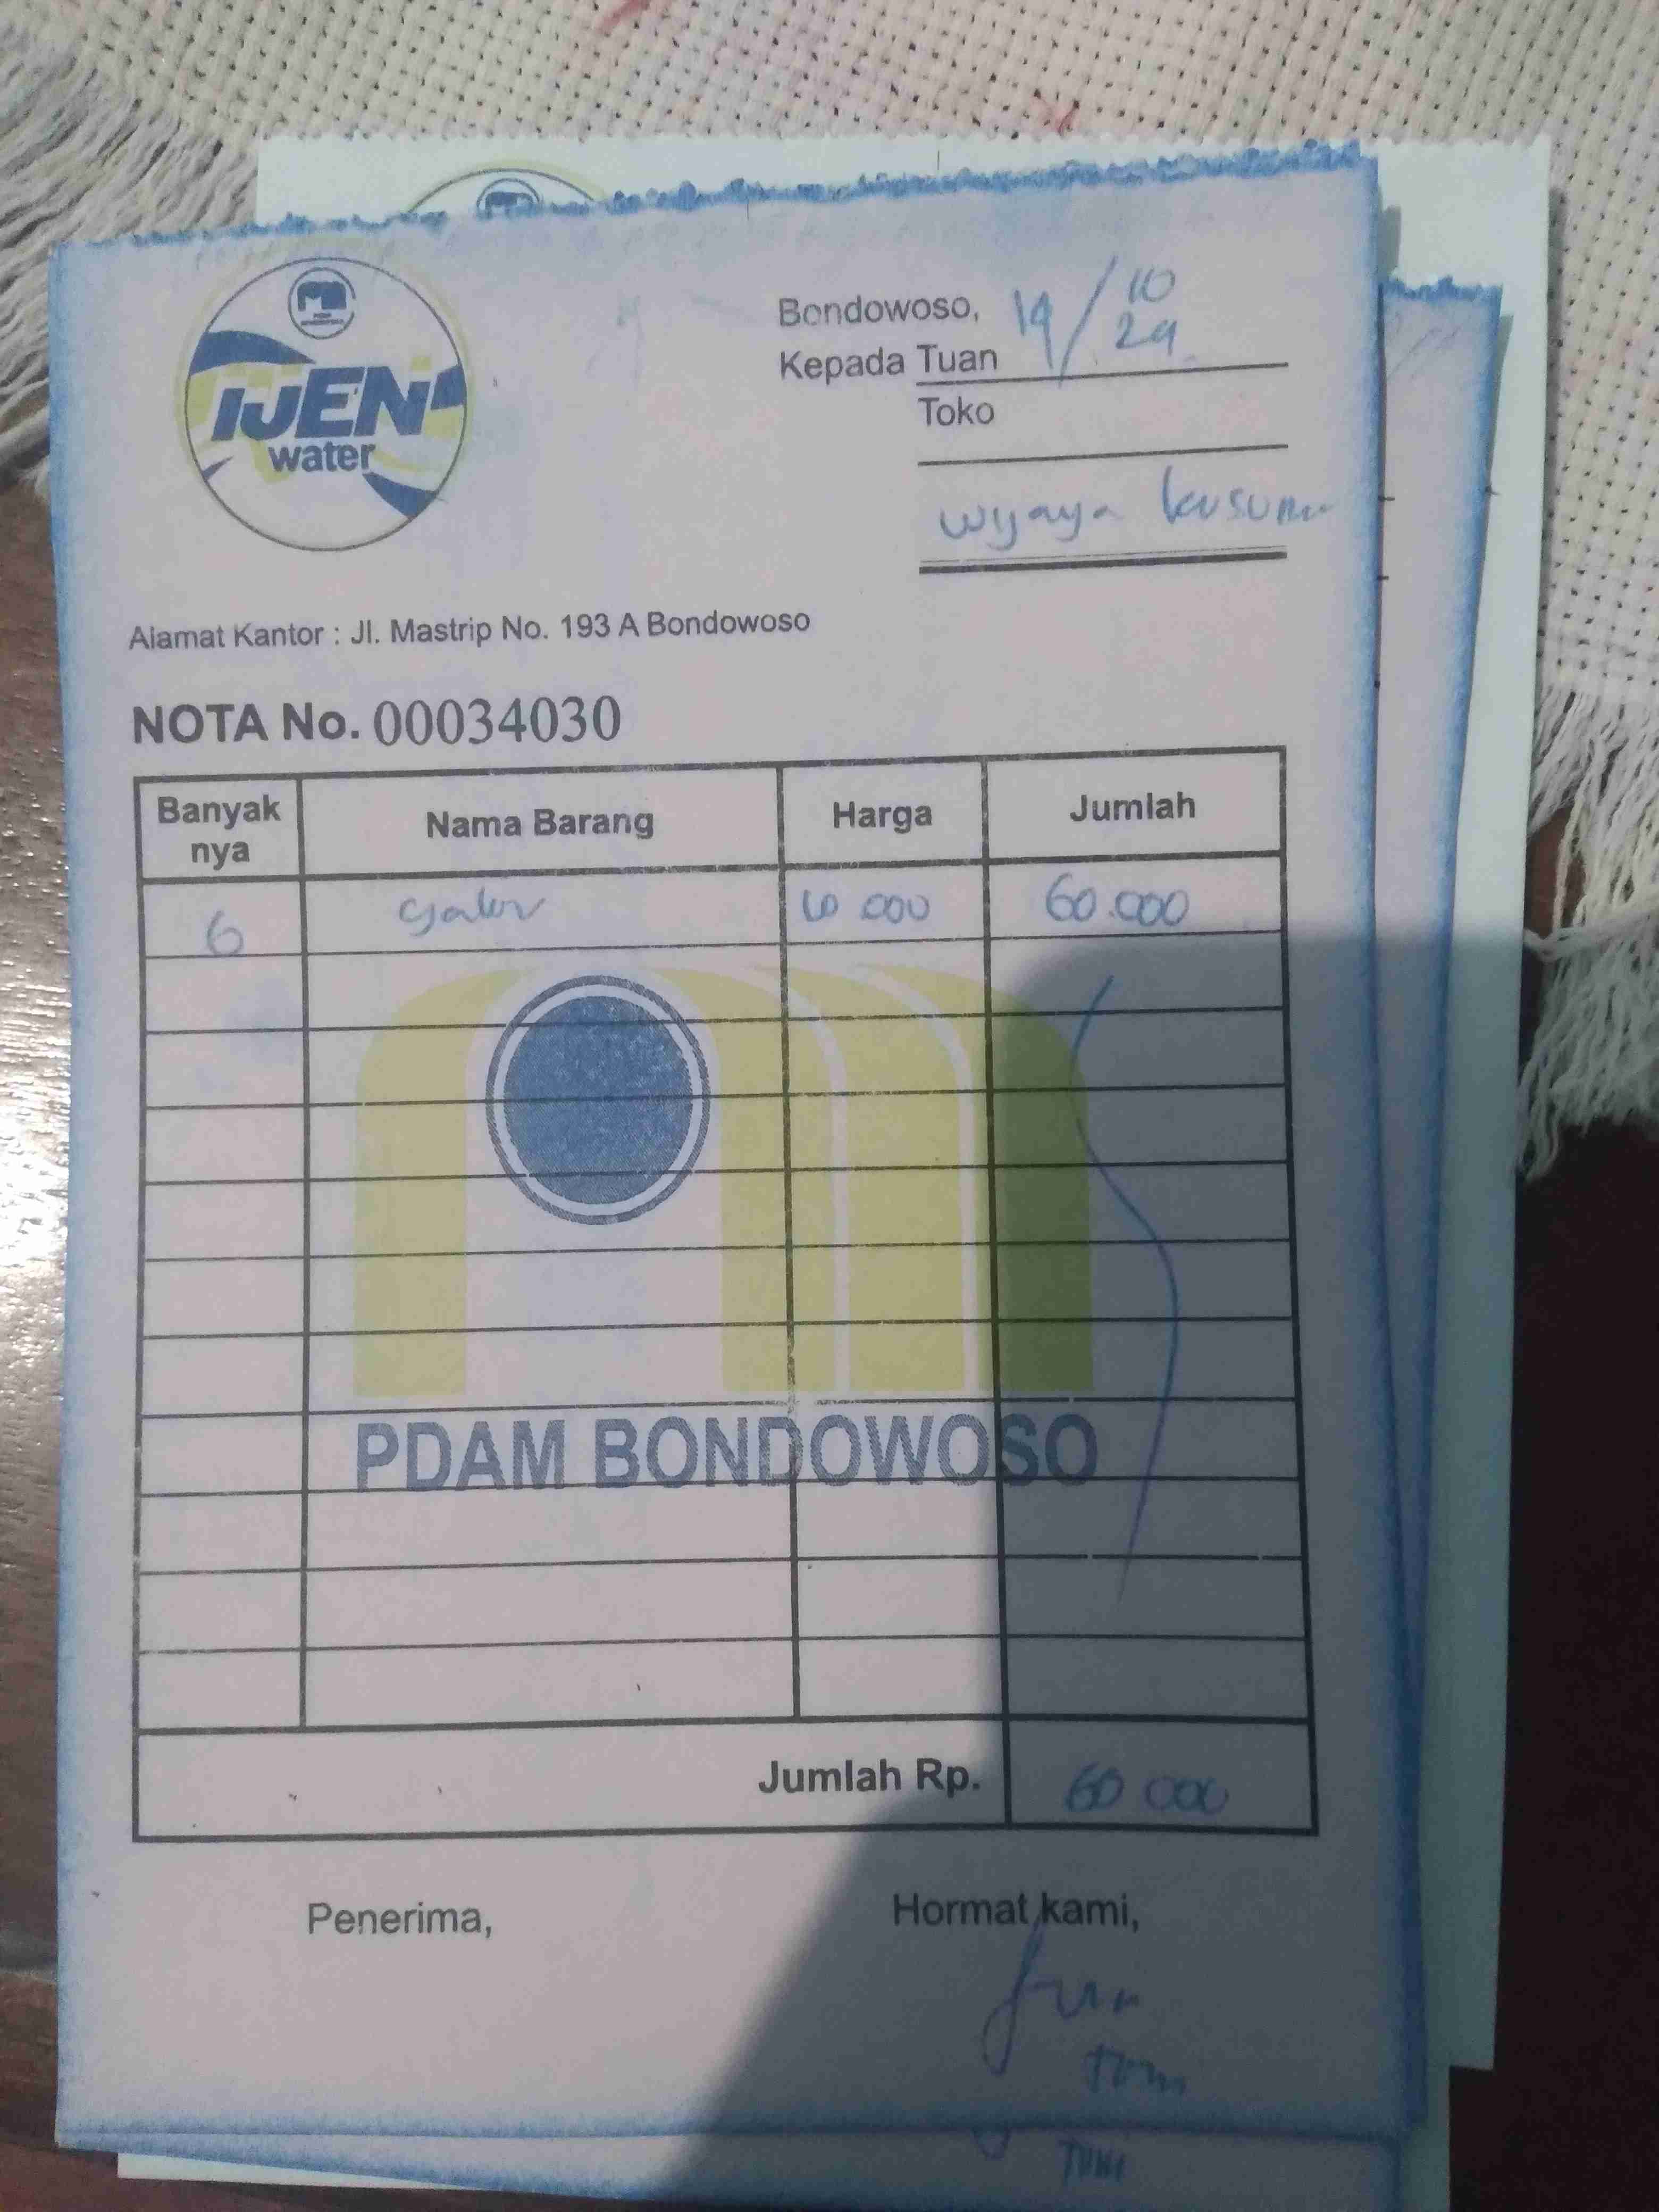 IJEN
water
Bondowoso, 19/10 24
Kepada Tuan
Toko
Wijaya kusuma
Alamat Kantor : Jl. Mastrip No. 193 A Bondowoso
NOTA No. 00034030
Banyak nya Nama Barang Harga Jumlah
6 galon 10.000 60.000
PDAM BONDOWOSO
Jumlah Rp. 60 000
Penerima, Hormat kami,